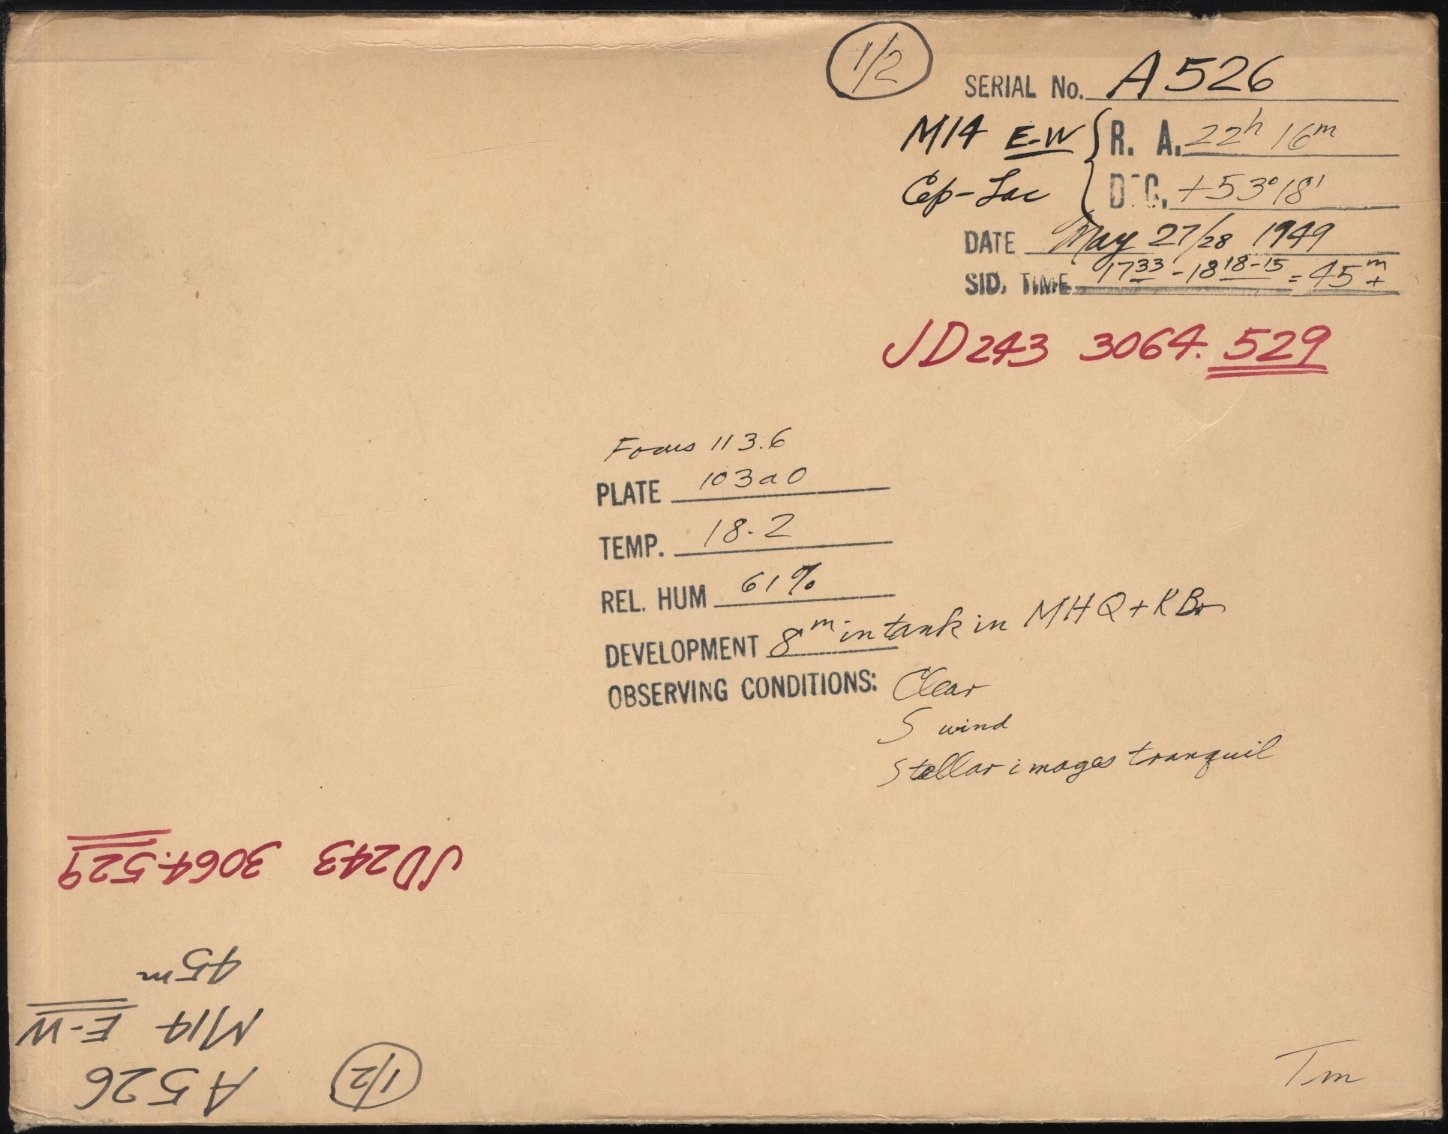 1/2
SERIAL No. A 526
M14 E-W R. A. 22h 16m
Cep-Lac DEC. +53°18'
DATE May 27/28 1949
SID. TIME 17 33 - 18 18-15 = 45m +
JD243 3064.529
Focus 113.6
PLATE 103a0
TEMP. 18.2
REL. HUM 61%
DEVELOPMENT 8m in tank in MHQ+KBr
OBSERVING CONDITIONS: Clear
S wind
Stellar images tranquil
JD243 3064.529
45m
M14 E-W
A 526 1/2
Tm